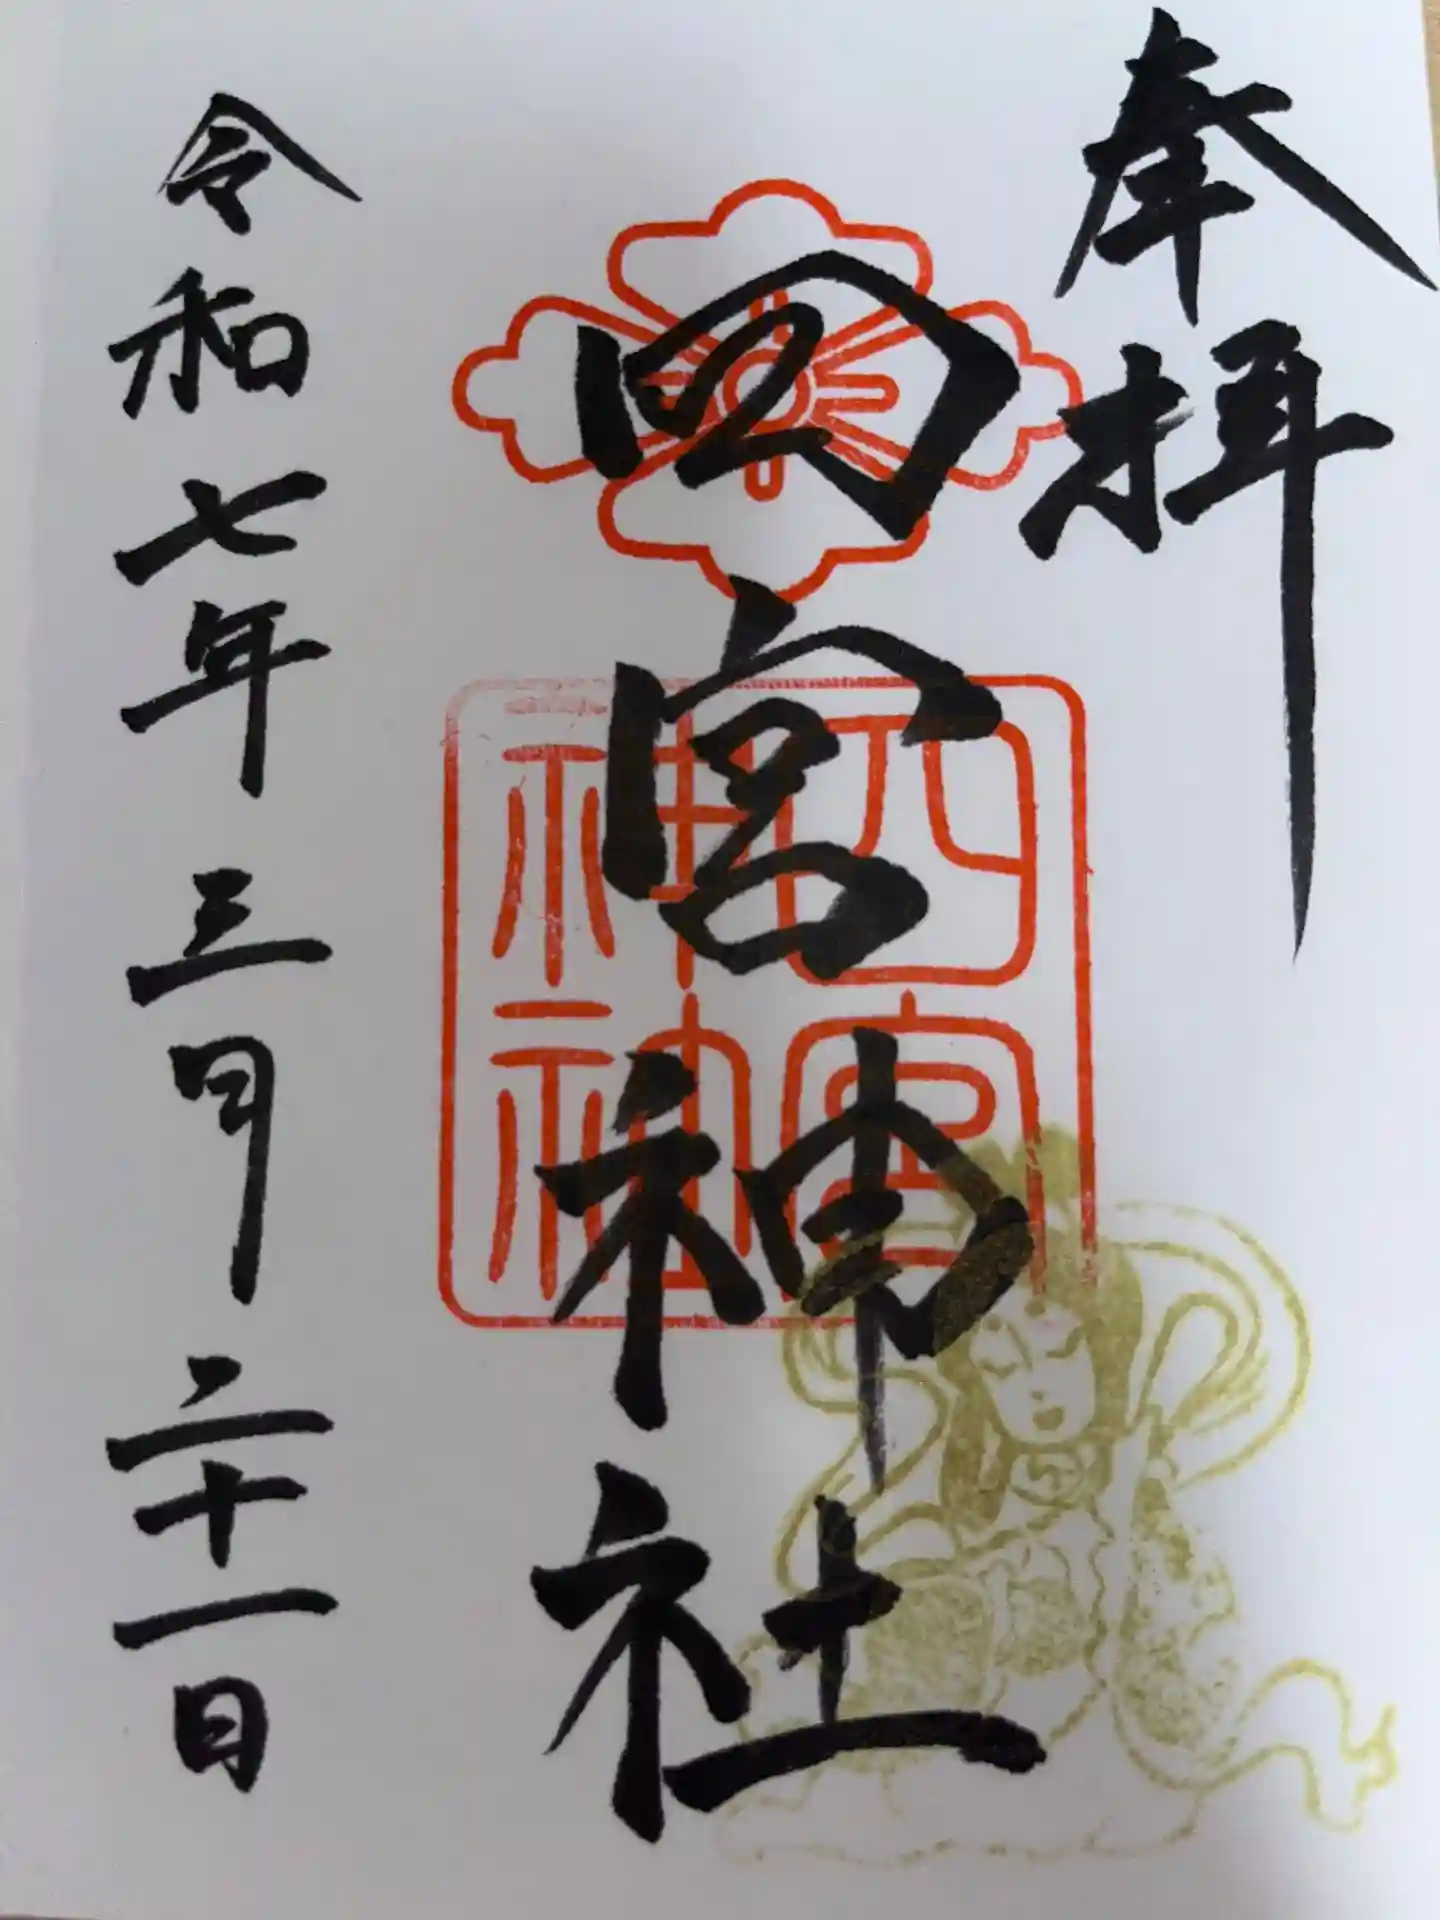 奉拝
四宮神社
四宮
神社
令和七年三月二十一日